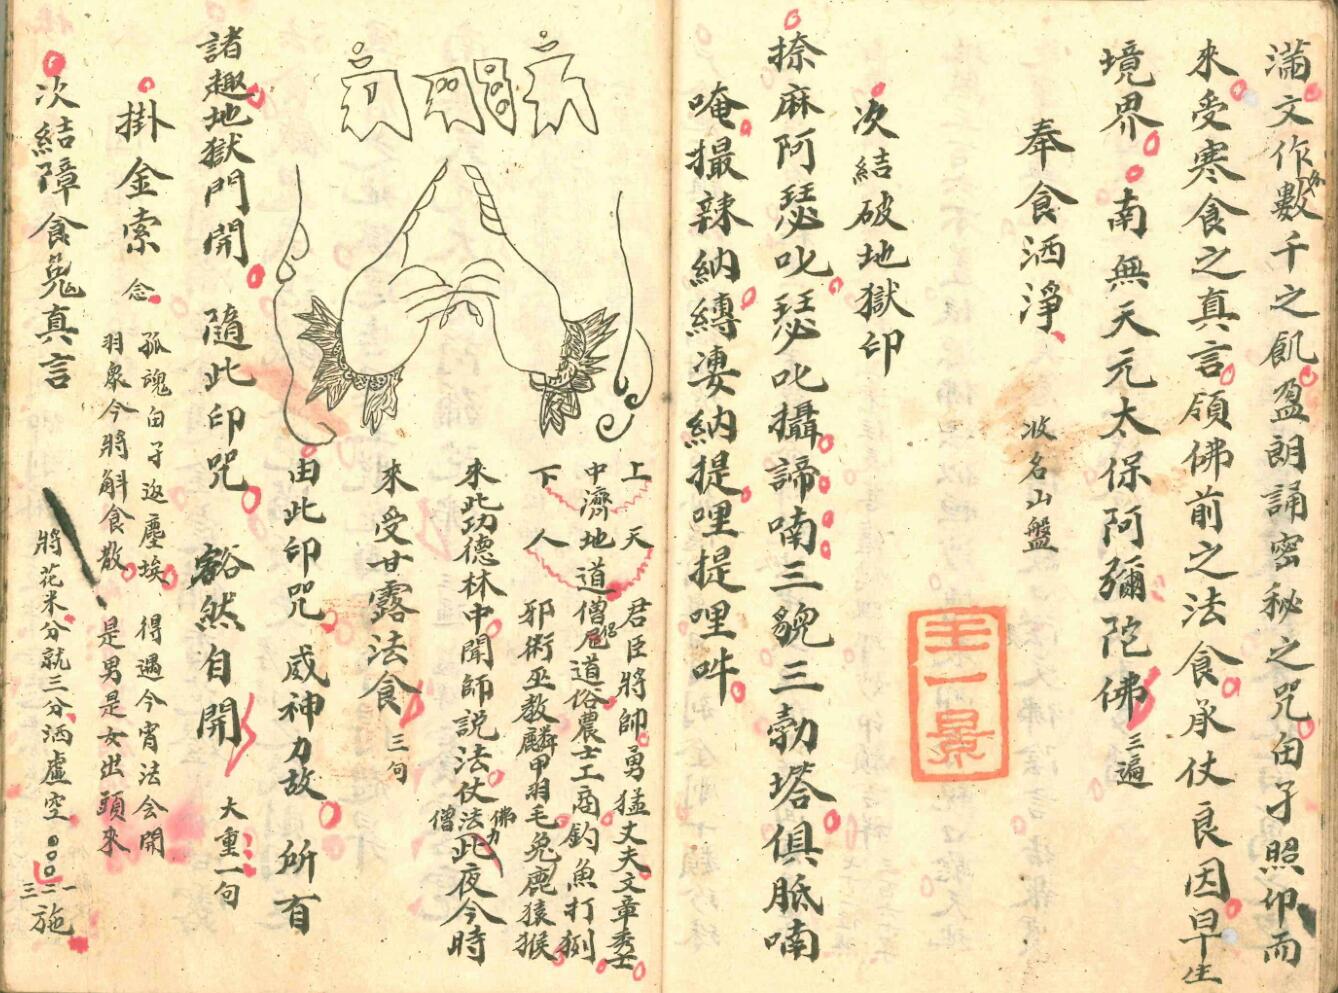 滿文作數千之飢盈朗誦密秘之咒由子照印而
來受寒食之真言領佛前之法食承仗良因早生
境界南無天元太保阿彌陀佛三遍
奉食洒淨 收名山盤
次結破地獄印
捺麻阿瑟吒瑟吒攝諦喃三貌三勃塔俱胝喃
唵撮辣納縛婁納提哩提哩吽
王一景
上 天 君臣將帥勇猛丈夫文章秀士
中濟地道 僧尼侶道俗農士工商釣魚打
下 人 邪術巫教麟甲羽毛兔鹿猿猴
來此功德林中聞師説法仗法此夜今時
佛力
僧
來受甘露法食 三句
由此印咒威神力故 所有
諸趣地獄門開 隨此印咒 豁然自開 大重一句
掛金索 念 孤魂由子返塵埃 得遇今宵法会開
羽衆今將斛食散 是男是女出頭來
次結障食鬼真言 將花米分就三分洒虛空 一二三施